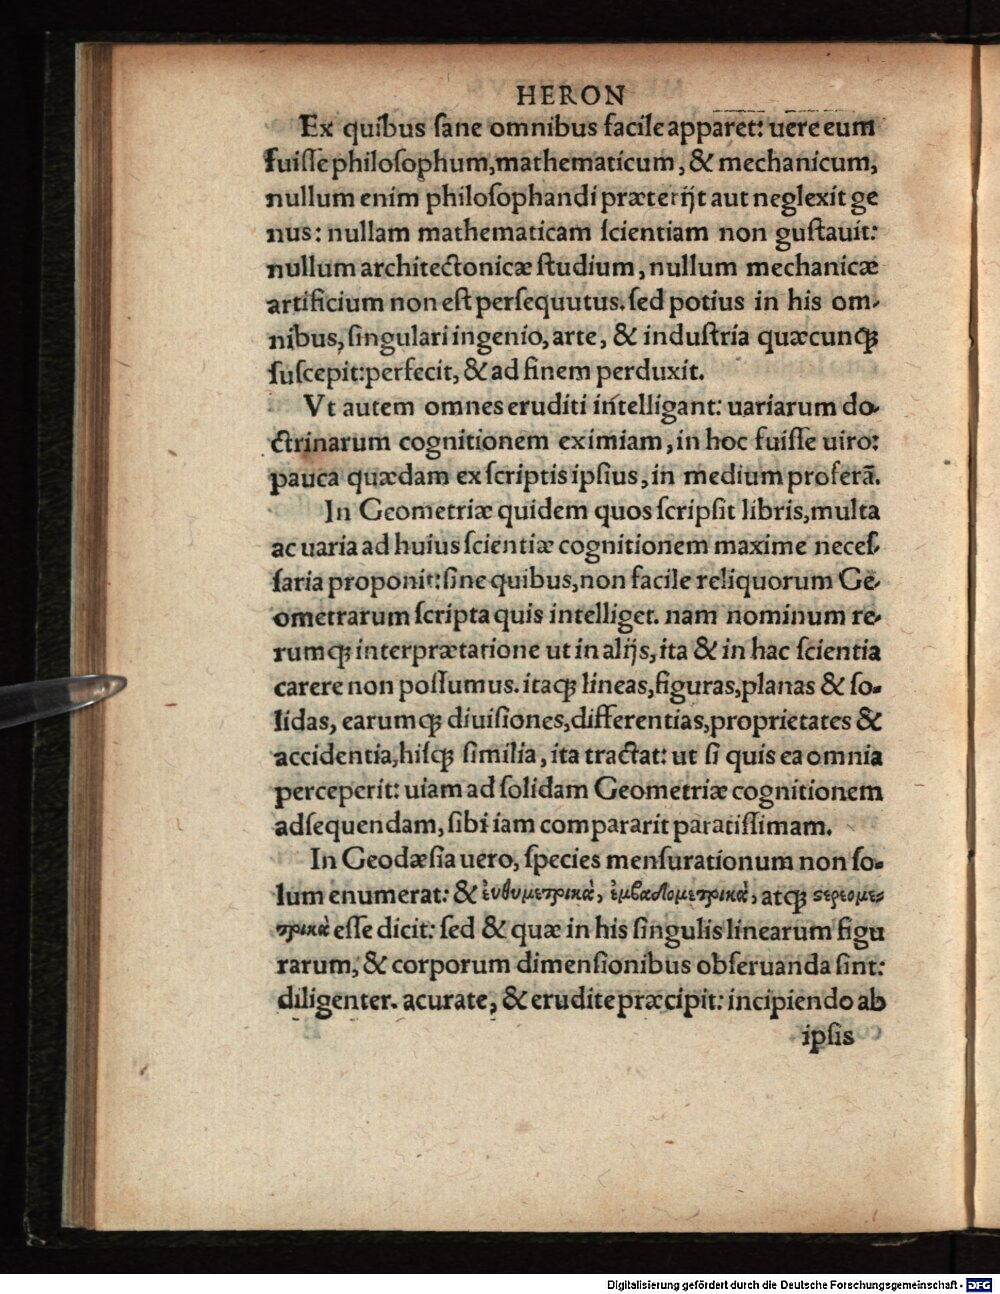 HERON
Ex quibus ſane omnibus facile apparet: uere eum
fuiſſe philoſophum, mathematicum, & mechanicum,
nullum enim philoſophandi præterijt aut neglexit ge
nus: nullam mathematicam ſcientiam non guſtauit:
nullum architectonicæ ſtudium, nullum mechanicæ
artificium non eſt perſequutus. ſed potius in his om-
nibus, ſingulari ingenio, arte, & induſtria quæcunqꝫ
ſuſcepit: perfecit, & ad finem perduxit.
Vt autem omnes eruditi intelligant: uariarum do-
ctrinarum cognitionem eximiam, in hoc fuiſſe uiro:
pauca quædam ex ſcriptis ipſius, in medium proferā.
In Geometriæ quidem quos ſcripſit libris, multa
ac uaria ad huius ſcientiæ cognitionem maxime neceſ-
ſaria proponit: ſine quibus, non facile reliquorum Ge-
ometrarum ſcripta quis intelliget. nam nominum re-
rumqꝫ interprætatione ut in alijs, ita & in hac ſcientia
carere non poſſumus. itaqꝫ lineas, figuras, planas & ſo-
lidas, earumqꝫ diuiſiones, differentias, proprietates &
accidentia, hiſqꝫ ſimilia, ita tractat: ut ſi quis ea omnia
perceperit: uiam ad ſolidam Geometriæ cognitionem
adſequendam, ſibi iam compararit paratiſſimam.
In Geodæſia uero, ſpecies menſurationum non ſo-
lum enumerat: & ἐυθυμετρικὰ, ἐμβαδομετρικὰ, atqꝫ ςερεομε-
τρικὰ eſſe dicit: ſed & quæ in his ſingulis linearum figu
rarum, & corporum dimenſionibus obſeruanda ſint:
diligenter. acurate, & erudite præcipit: incipiendo ab
ipſis
Digitalisierung gefördert durch die Deutsche Forschungsgemeinschaft - DFG